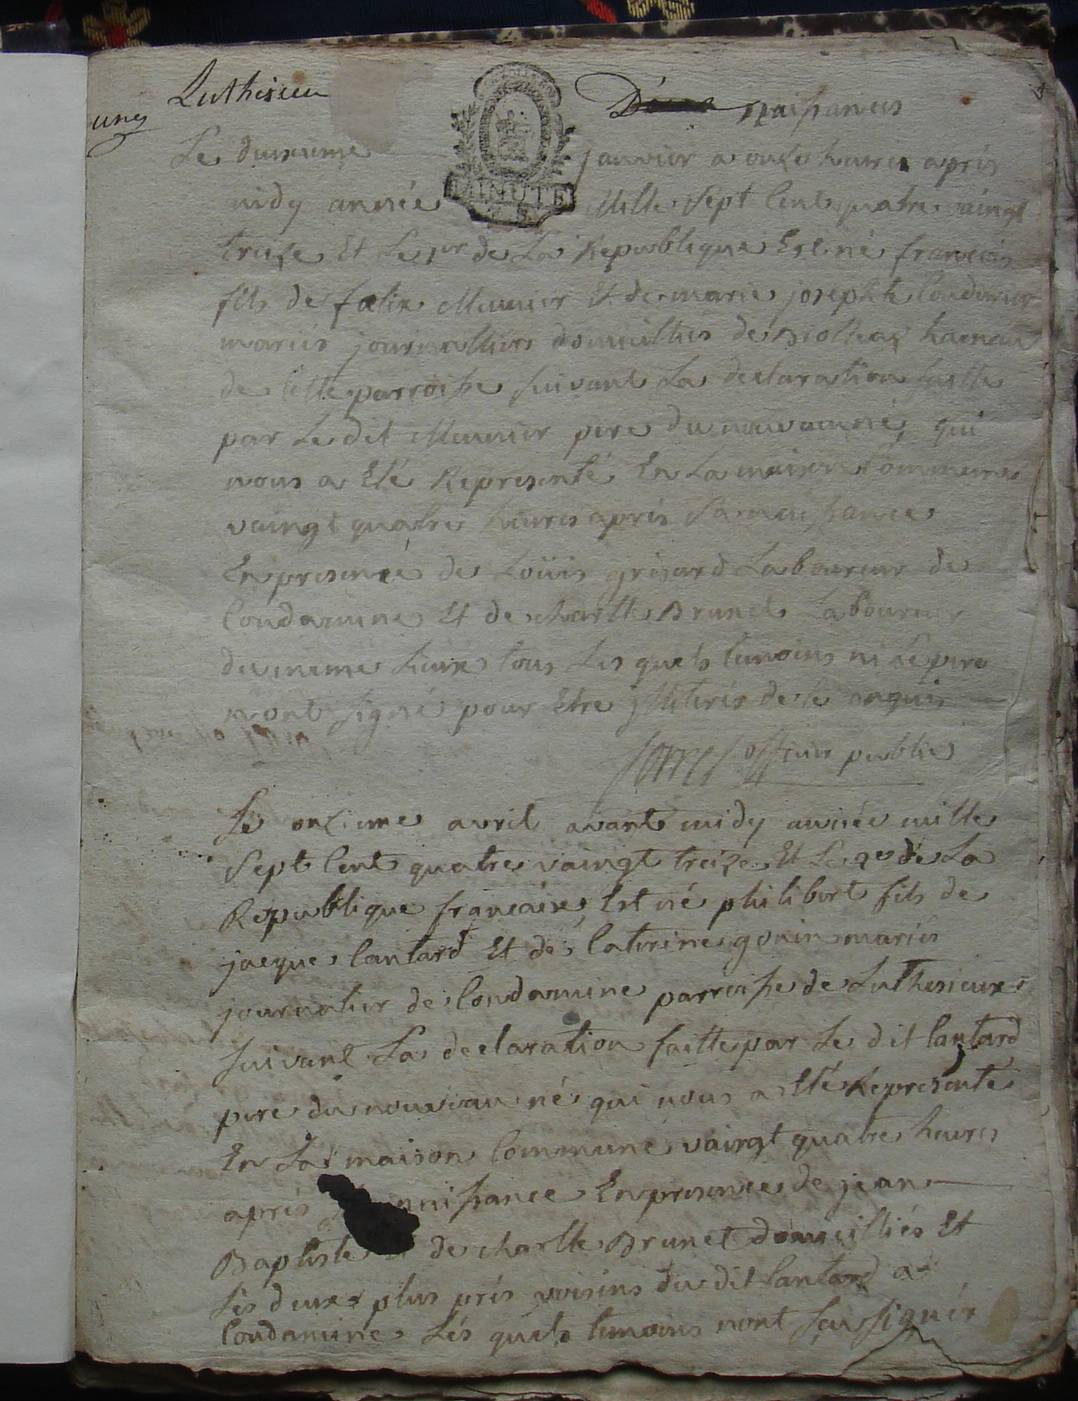 Luthisieu
naissances
Le deuxieme janvier a onze heures après
midy année Mille Sept Cent quatre vaingt
MINUTE
treize Et Le 1er de La Republique Est né francois
fils de felix Munier Et de marie josephte Condurier
mariés journalliers domicilliés de hameau
de Cette parroisse suivant La declaration faitte
par Le dit Munier pere du nouvauné, qui
nous a Eté Represénté En La maison Commune
vaingt quatre heures après Sa naissance
En presence de Loüis grisard Laboureur de
Condamine Et de charlle Brunet Laboureur
du même Lieux tous Les quels temoins ni Le pere
nont signé pour Etre illitirés de ce enquis
officier public
Le onzieme avril avant midy année mille
Sept Cent quatre vaingt treize Et Le 2e de La
Republique française, Est né philibert fils de
jacque lantard Et de Caterine gonin mariés
journalier de Condamine parroisse de Luthesieux
suivant La declaration faitte par Le dit lantard
pere du nouveau né qui nous a Eté Represénté
En La maison Commune vaingt quatre heures
après naissance En presence de jean
Baptiste de charlle Brunet domicilliés Et
Les deux plus près voisins du dit lantard a
Condamine Lés quels temoins nont sçu signér